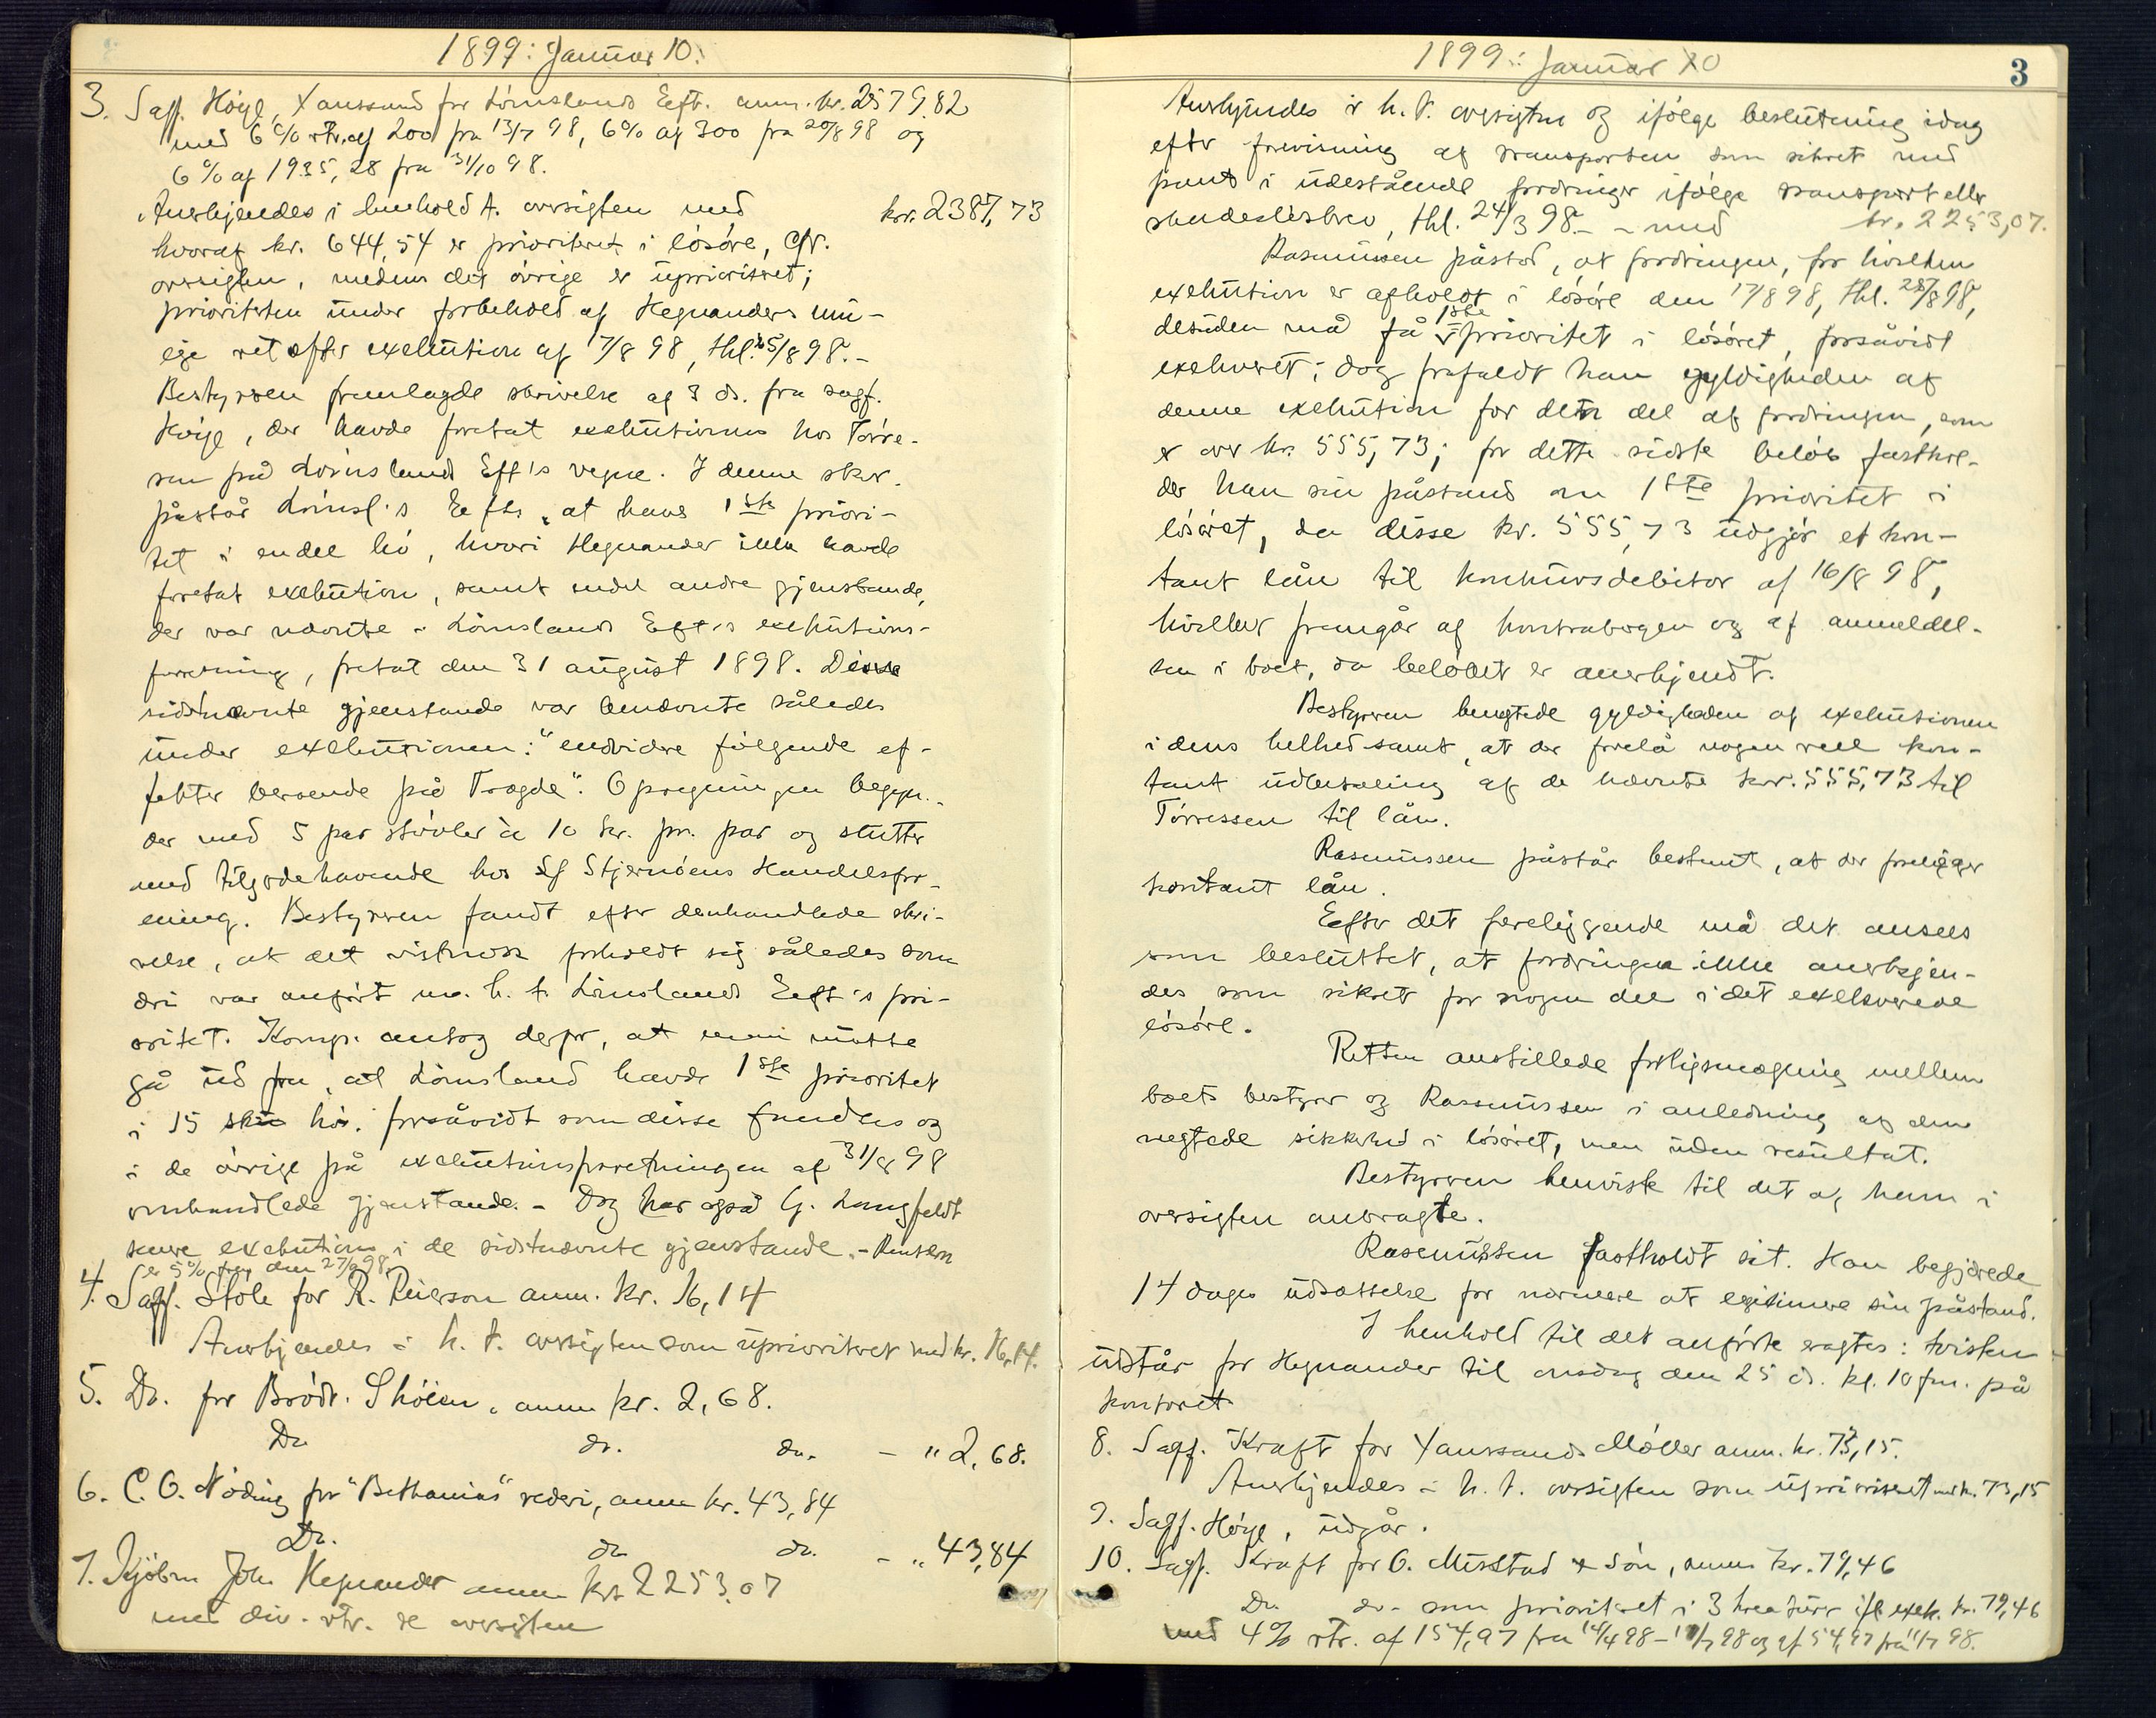 1899: Januar 10.
3. Sagf. Høye, Xanssand for Lømslands Eeft. anm. kr. 2579.82
med 6 % rtr. af 200 fra 13/7 98, 6% af 300 fra 20/8 98 og
6 % af 1935,28 fra 31/10 98.
Anerkjendes i henhold t. oversigten med kr. 2387,73
hvoraf kr. 644,54 er prioriteret i løsøre, cfr.
oversigten, medens det øvrige er uprioriteret;
prioriteten under forbehold af Hegnanders mu-
lige ret efter exekution af 17/8 98, thl. 25/8 98.-
Bestyreren fremlagde skrivelse af 3 ds. fra sagf.
Høye, der havde foretat exekutionen hos Tørre-
sen på Lømslands Eft's vegne. I denne skr.
påstår Lømsl's Eefts. at have 1ste priori-
tet i endel hø, hvori Hegnander ikke havde
foretat exekution, samt endel andre gjenstande,
der var nævnte i Lømslands Eeft's exekutions-
forretning, foretat den 31 august 1898. Disse
sidstnævnte gjenstande var benævnte således
under exekutionen: "endvidere følgende ef-
fekter beroende på Trægde". Opregningen begyn-
der med 5 par støvler à 10 kr. pr. par og slutter
med tilgodehavende hos Sf Stjernøens Handelsfor-
ening. Bestyreren fandt efter denhandlede skri-
velse, at det vistnok forholdt sig således som
deri var anført m. h. t. Lømslands Eeft's pri-
oritet. Komp. antog derfor, at man måtte
gå ud fra, at Lømsland havde 1ste prioritet
i 15 hø. forsåvidt som disse fandtes og
i de øvrige på exekutionsforretningen af 31/8 98
omhandlede gjenstande. - Dog har også G. Langfeldt
senere exekution i de sidstnævnte gjenstande. - Renten
er 5% fra den 27/9 98.
4. Sagf. Stole for R. Reierson anm. kr. 16,14
Anerkjendes i h. t. oversigten som uprioriteret med kr. 16,14.
5. Do. for Brødr. Skøien, anm. kr. 2,68.
Do do. do. - " 2,68.
6. C. O. Nøding for "Bethanias" rederi, anm kr. 43,84
Do. do do. - " 43,84
7. Kjøbm John Hegnander anm kr 2253.07
med div. rtr. se oversigten
1899: Januar 10
3
Anerkjendes i h. t. oversigten og ifølge beslutning idag
efter forevisning af transporten som sikret med
pant i udestående fordringer ifølge transport eller
skadesløsbrev, thl. 24/3 98. - - med kr. 2253,07.
Rasmussen påstod, at fordringen, for hvilken
exekution er afholdt i løsøre den 17/8 98, thl. 25/8 98,
desuden må få 1ste prioritet i løsøret, forsåvidt
exekveret; dog frafaldt han gyldigheden af
denne exekution for den del af fordringen, som
er over kr. 555,73; for dette sidste beløb fasthol-
der han sin påstand om 1ste prioritet i
løsøret, da disse kr. 555,73 udgjør et kon-
tant lån til konkursdebitor af 16/8 98,
hvilket fremgår af kontrabogen og af anmeldel-
sen i boet, da beløbet er anerkjendt.
Bestyreren benegtede gyldigheden af exekutionen
i dens helhed samt, at der forelå nogen reel kon-
tant udbetaling af de nævnte kr. 555,73 til
Tørressen til lån.
Rasmussen påstår bestemt, at der foreligger
kontant lån.
Efter det foreliggende må det ansees
som besluttet, at fordringen ikke anerkjen-
des som sikret for nogen del i det exekverede
løsøre.
Retten anstillede forligsmægling mellem
boets bestyrer og Rasmussen i anledning af den
negtede sikkerhed i løsøret, men uden resultat.
Bestyreren henviste til det af ham i
oversigten anbragte.
Rasmussen fastholdt sit. Han begjærede
14 dages udsættelse for nærmere at legitimere sin påstand.
I henhold til det anførte vagtes: tvisten
udstår for Hegnander til onsdag den 25 ds. kl. 10 fm. på
kontoret.
8. Sagf. Kraft for Xanssands Møller anm. kr. 73,15.
Anerkjendes i h. t. oversigten som uprioriteret med kr. 73,15
9. Sagf. Høye, udgår.
10. Sagf. Kraft for O. Mustad & Søn, anm kr. 79,46
Do. do - som prioriteret i 3 kreaturer ifl. exek. kr. 79,46
med 4% rtr. af 154,97 fra 14/4 98 - 11/7 98 og af 54,97 fra 11/7 98.